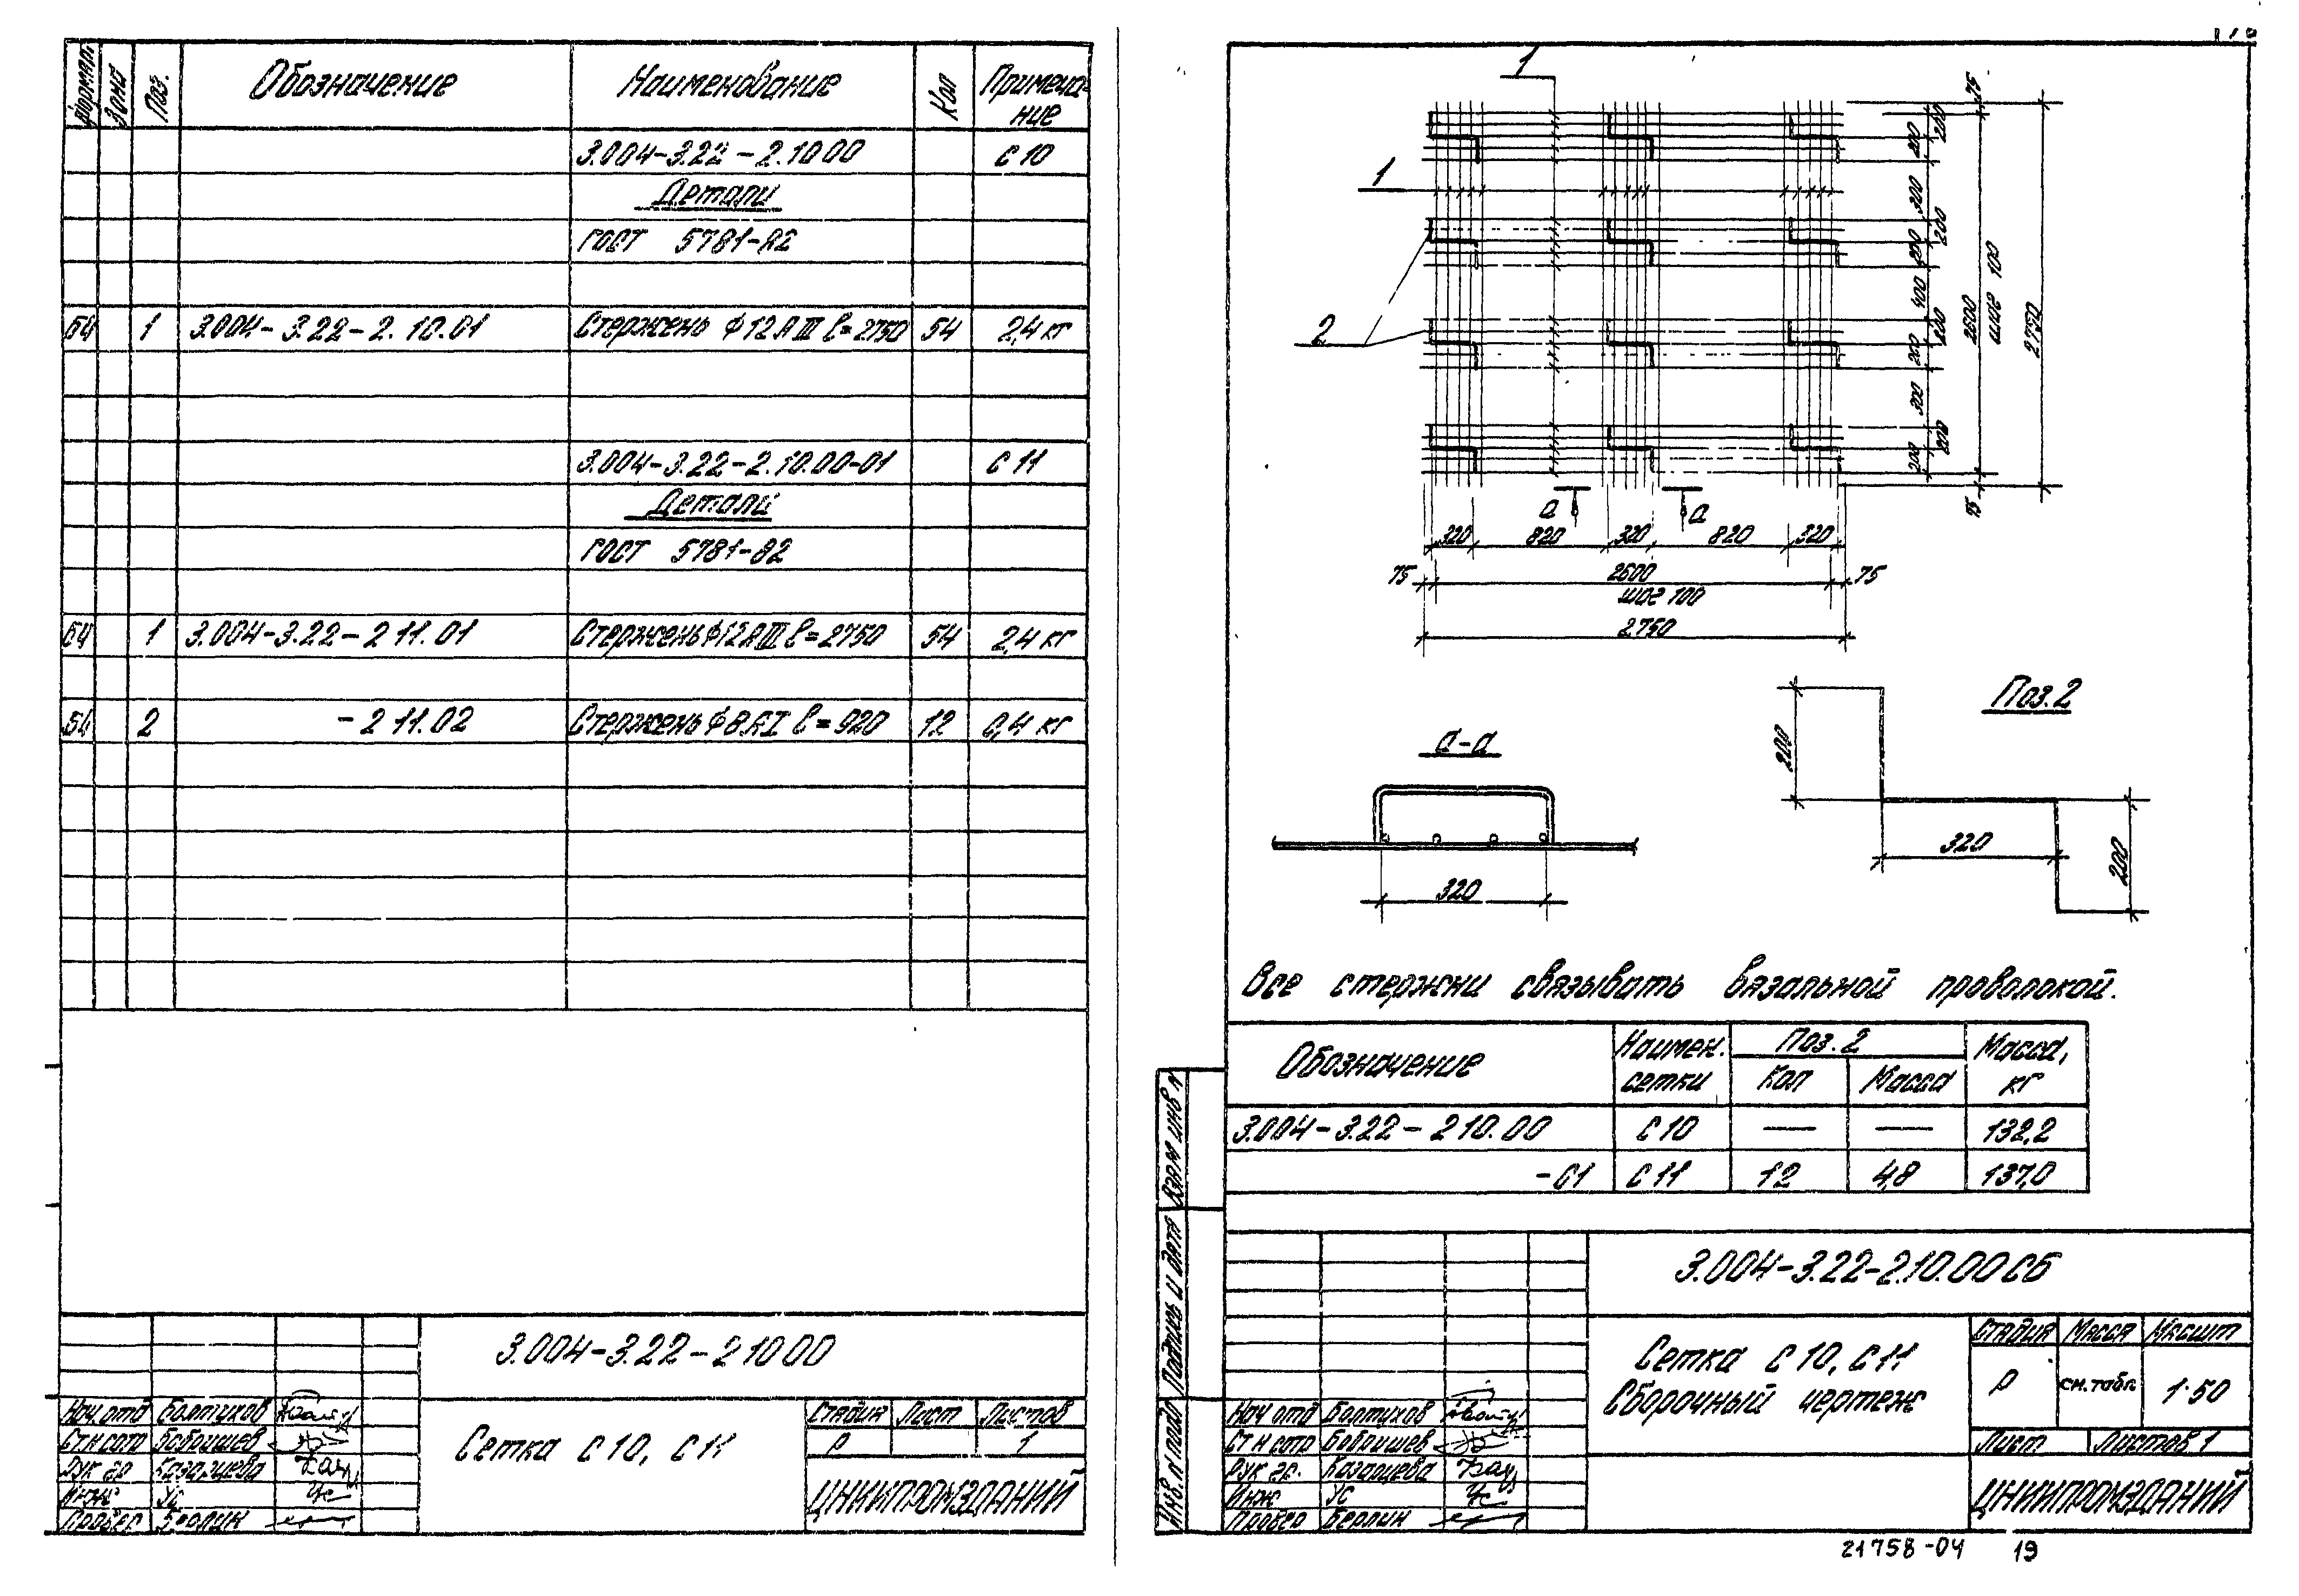 Формат Зона Поз. Обозначение Наименование Кол Примеча-
ние
3.004-3.22-2.1000 С 10
Детали
ГОСТ 5781-82
БЧ 1 3.004-3.22-2.10.01 Стержень ф12АIII ℓ=2750 54 2,4 кг
3.004-3.22-2.10.00-01 С 11
Детали
ГОСТ 5781-82
БЧ 1 3.004-3.22-2 11.01 Стержень ф12АIII ℓ=2750 54 2,4 кг
БЧ 2 -2 11.02 Стержень ф8АI ℓ=920 12 0,4 кг
3.004-3.22-2 10 00
Нач отд Болтухов
Ст н сотр Бобришев
Рук гр Казарцева
Инж Ус
Провер Берлин
Сетка С 10, С 11
Стадия Лист Листов
Р 1
ЦНИИПРОМЗДАНИЙ
1
1
2
75
200 200
300
200 200
400
200 200
300
200 200
75
2600
шаг 100
2750
а а
320 820 320 820 320
75 2600 75
шаг 100
2750
а-а
320
Поз.2
200
320
200
Все стержни связывать вязальной проволокой.
Обозначение Наимен.
сетки Поз. 2 Масса,
кг
Кол Масса
3.004-3.22-2 10.00 С 10 — — 132,2
-01 С 11 12 4,8 137,0
Взам инв N
Подпись и дата
Инв. N подл
3.004-3.22-2.10.00СБ
Нач отд Болтухов
Ст н сотр Бобришев
Рук гр. Казарцева
Инж Ус
Провер Берлин
Сетка С 10, С 11
Сборочный чертеж
Стадия Масса Масшт
Р см. табл. 1:50
Лист Листов 1
ЦНИИПРОМЗДАНИЙ
21758-04 19